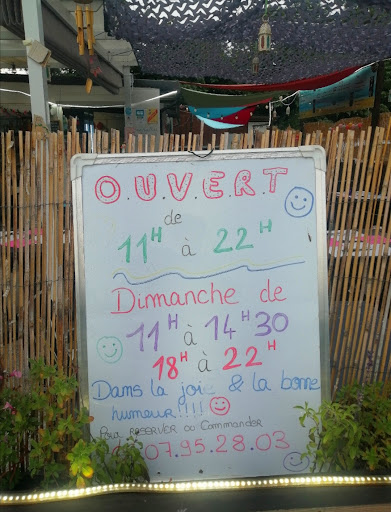 O.U.V.E.R.T
de
11H à 22H
Dimanche de
11H à 14H30
18H à 22H
Dans la joie & la bonne
humeur!!!!
Pour RESERVER ou Commander
07.95.28.03